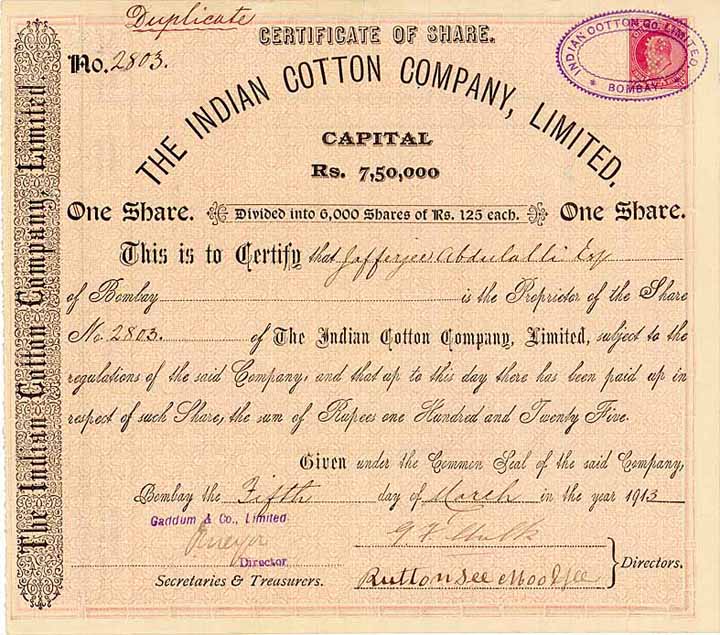 Duplicate
CERTIFICATE OF SHARE.
No. 2803.
INDIAN COTTON Co. LIMITED.
BOMBAY
THE INDIAN COTTON COMPANY, LIMITED.
CAPITAL
Rs. 7,50,000
One Share. Divided into 6,000 Shares of Rs. 125 each. One Share.
This is to Certify that Jafferjee Abdulalli Esq
of Bombay is the Proprietor of the Share
No. 2803. of The Indian Cotton Company, Limited, subject to the
regulations of the said Company, and that up to this day there has been paid up in
respect of such Share, the sum of Rupees one Hundred and Twenty Five.
Given under the Common Seal of the said Company,
Bombay the Fifth day of March in the year 1913
Gaddum & Co., Limited
Director
Secretaries & Treasurers.
Ruttonsee Mooljee
Directors.
The Indian Cotton Company, Limited.